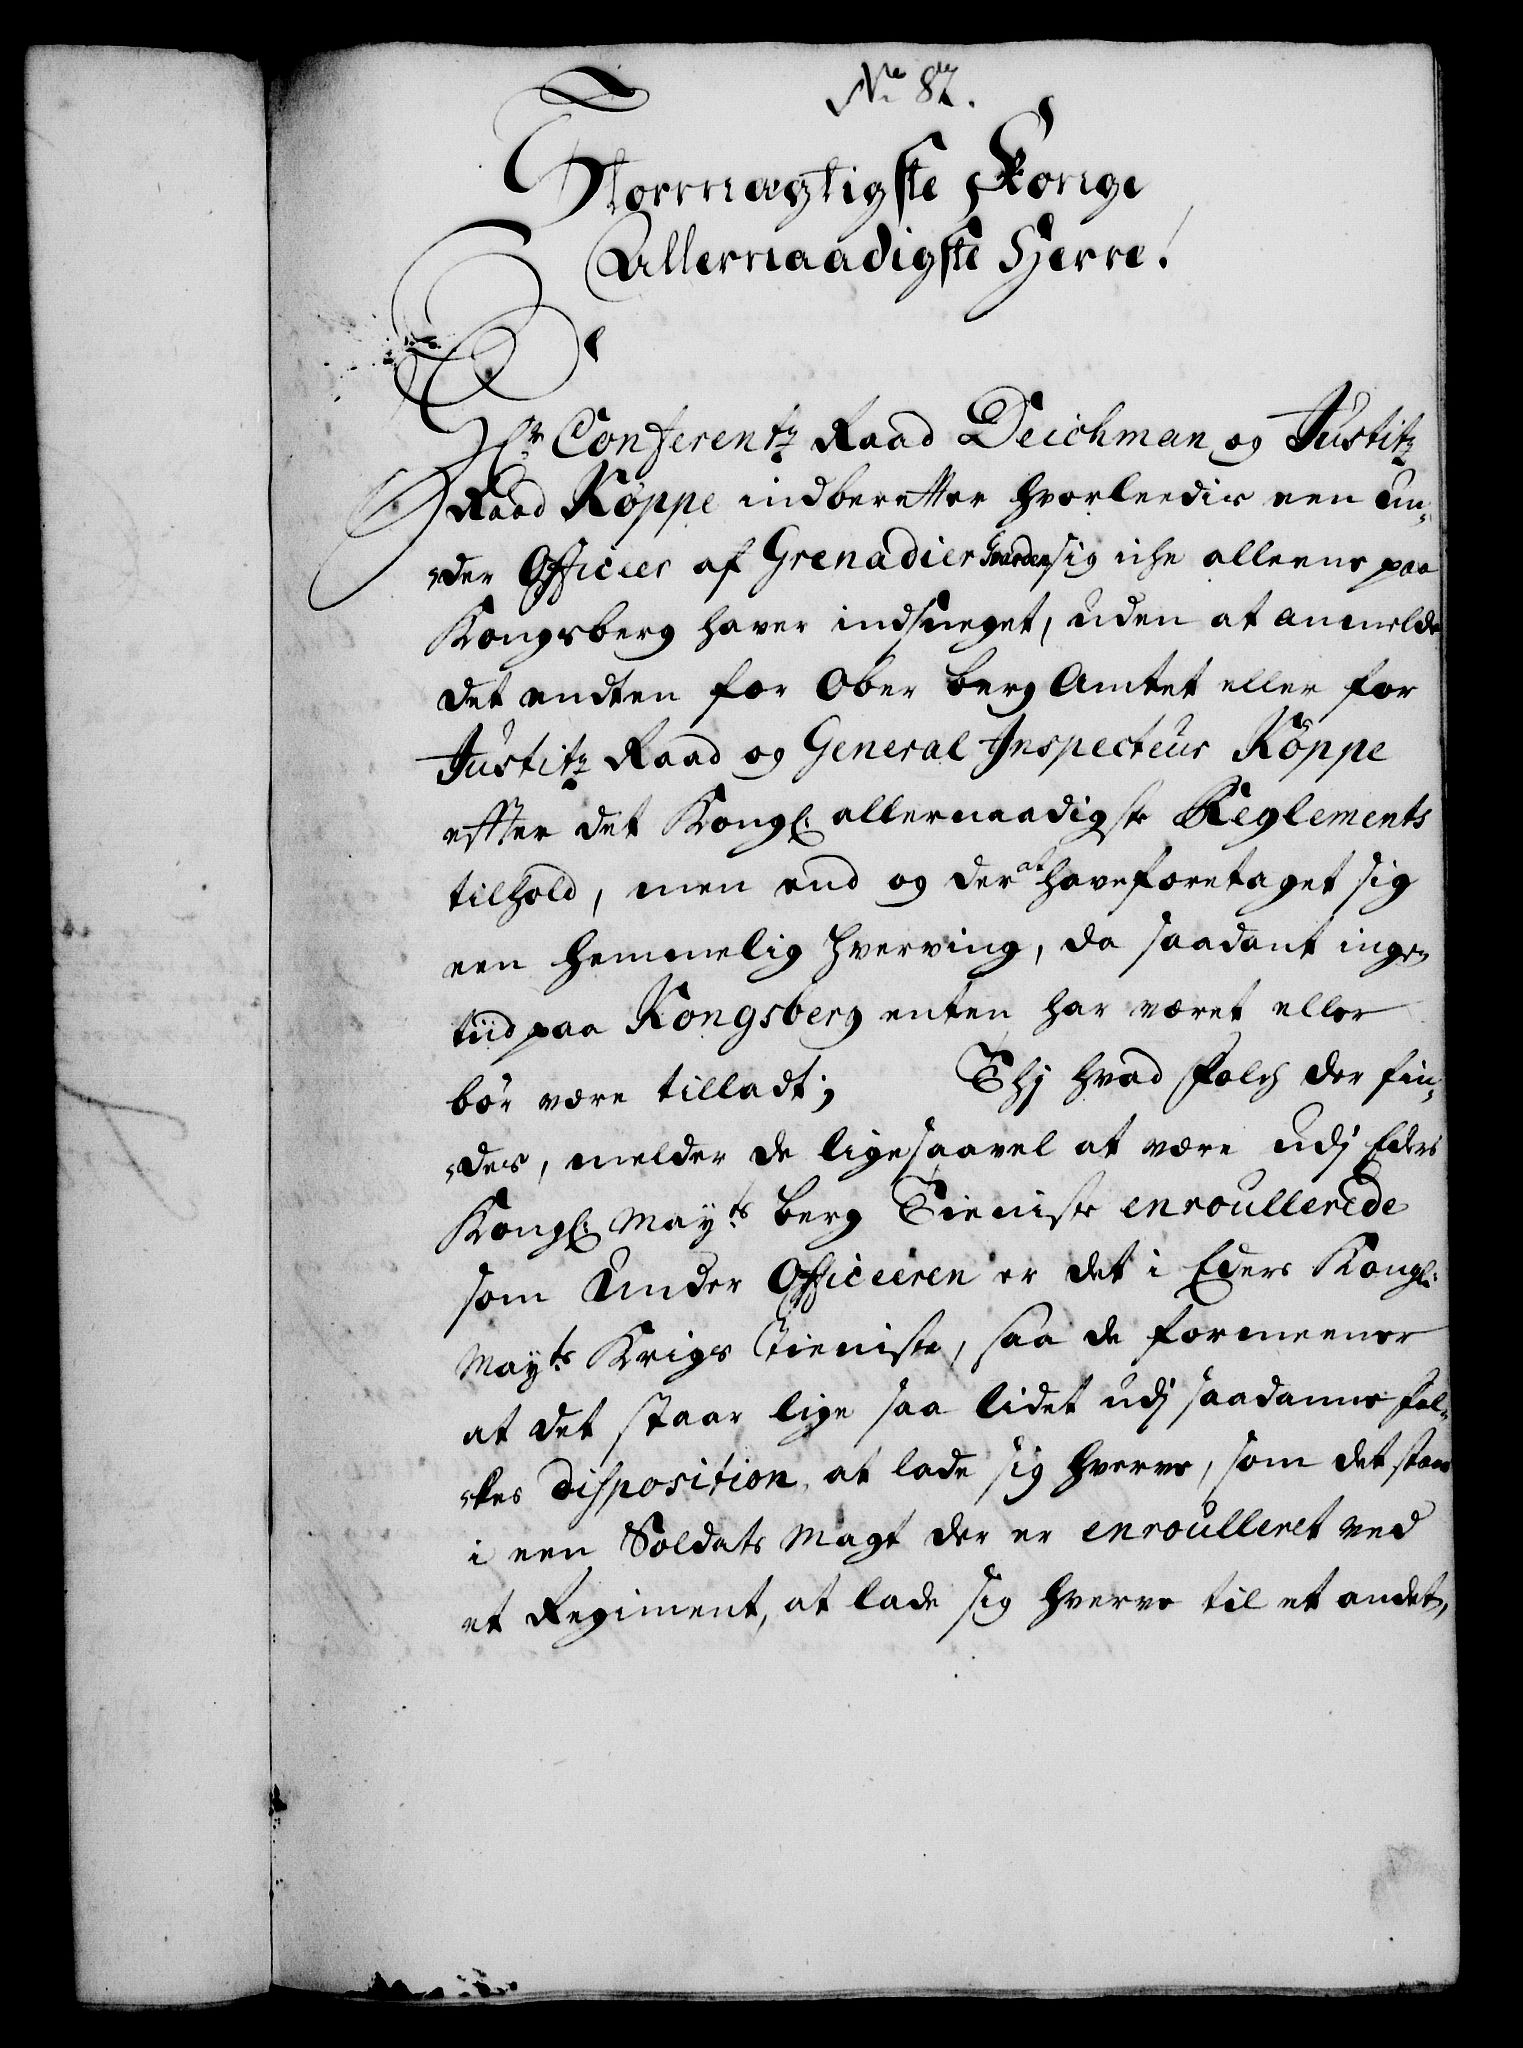 No 82.
Stormægtigste Konge
Allernaadigste Herre!
Hr Conferentz Raad Deichman og Justitz
Raad Köppe indberetter hvorleedis een Un-
der Officier af Grenadier Guarden sig iche alleene paa
Kongsberg haver indsneget, uden at anmelde
det endten for Ober berg Amtet eller for
Justitz Raad og General Inspecteur Köppe
efter det Kongl: allernaadigste Reglements
tilhold, men end og der at have foretaget sig
een hemmelig Hverving, da saadant ingen
tiid paa Kongsberg enten har været eller
bör være tilladt; Thj hvad Folch der fin-
des, melder de ligesaavel at være udj Eders
Kongl: Mayts berg Tieniste enroullerede
som Under Officeeren er det i Eders Kongl:
Mayts Krigs Tieniste, saa de formeener
at det staar lige saa lidet udj saadanne Fol-
kes disposition, at lade sig hverve, som det staar
i een Soldats Magt der er enroulleret ved
et Regiment, at lade sig hverve til et andet,